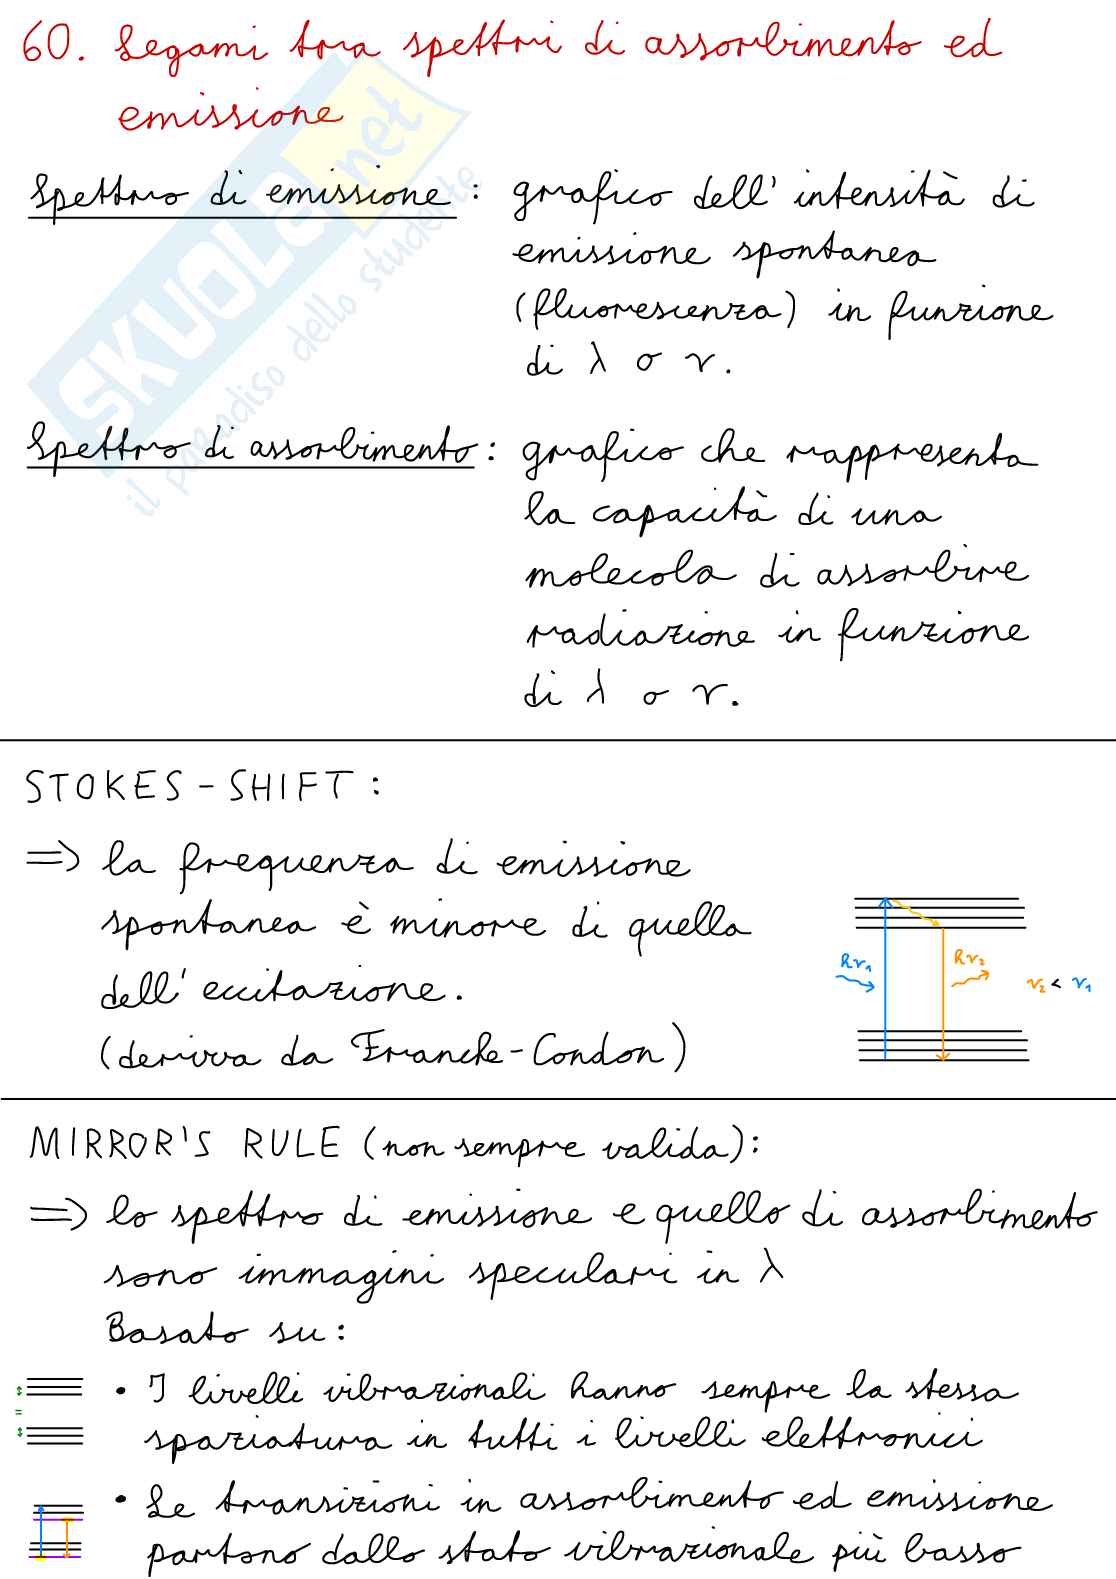 60. Legami tra spettri di assorbimento ed
emissione
Spettro di emissione : grafico dell'intensità di
emissione spontanea
(fluorescenza) in funzione
di λ o ν.
Spettro di assorbimento : grafico che rappresenta
la capacità di una
molecola di assorbire
radiazione in funzione
di λ o ν.
STOKES - SHIFT :
=> la frequenza di emissione
spontanea è minore di quella
dell'eccitazione.
(deriva da Franck-Condon)
hν₁ hν₂ ν₂ < ν₁
MIRROR'S RULE (non sempre valida):
=> lo spettro di emissione e quello di assorbimento
sono immagini speculari in λ
Basato su:
• I livelli vibrazionali hanno sempre la stessa
=
spaziatura in tutti i livelli elettronici
• Le transizioni in assorbimento ed emissione
partono dallo stato vibrazionale più basso
SKUOLA.net
il paradiso dello studente